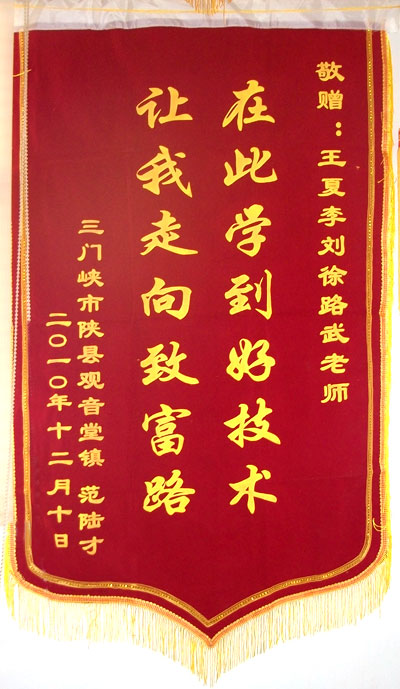 敬赠：王夏李刘徐路武老师
在此学到好技术
让我走向致富路
三门峡市陕县观音堂镇 范陆才
二〇一〇年十二月十日